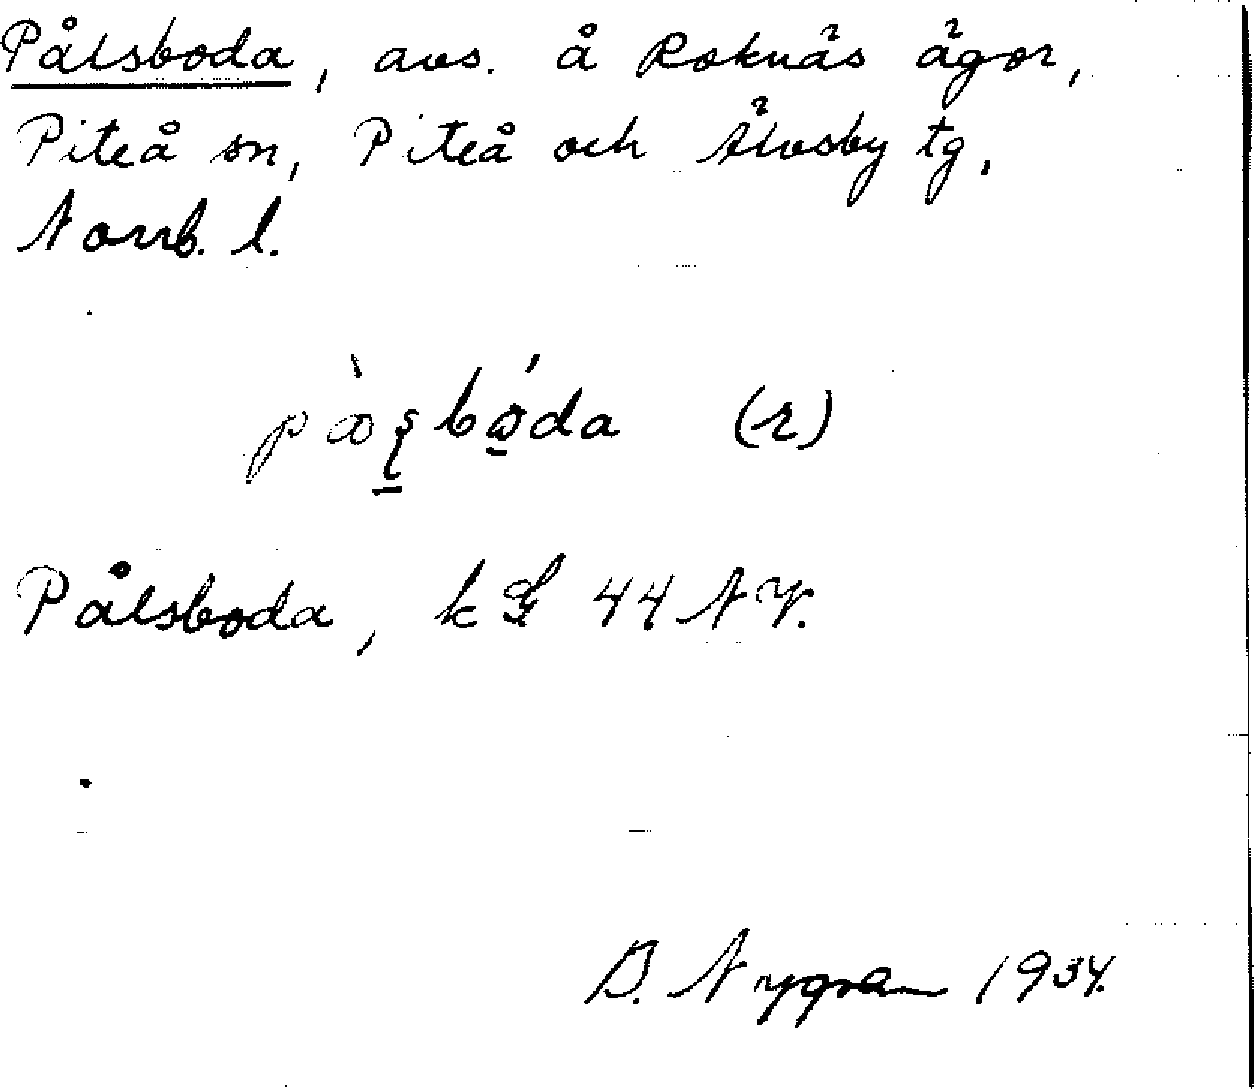 Pålsboda, avs. å Roknäs ägor,
Piteå sn, Piteå och Älvsby tg,
Norrb. l.
(r)
Pålsboda, k G 44 NV.
B. Nygren 1934.